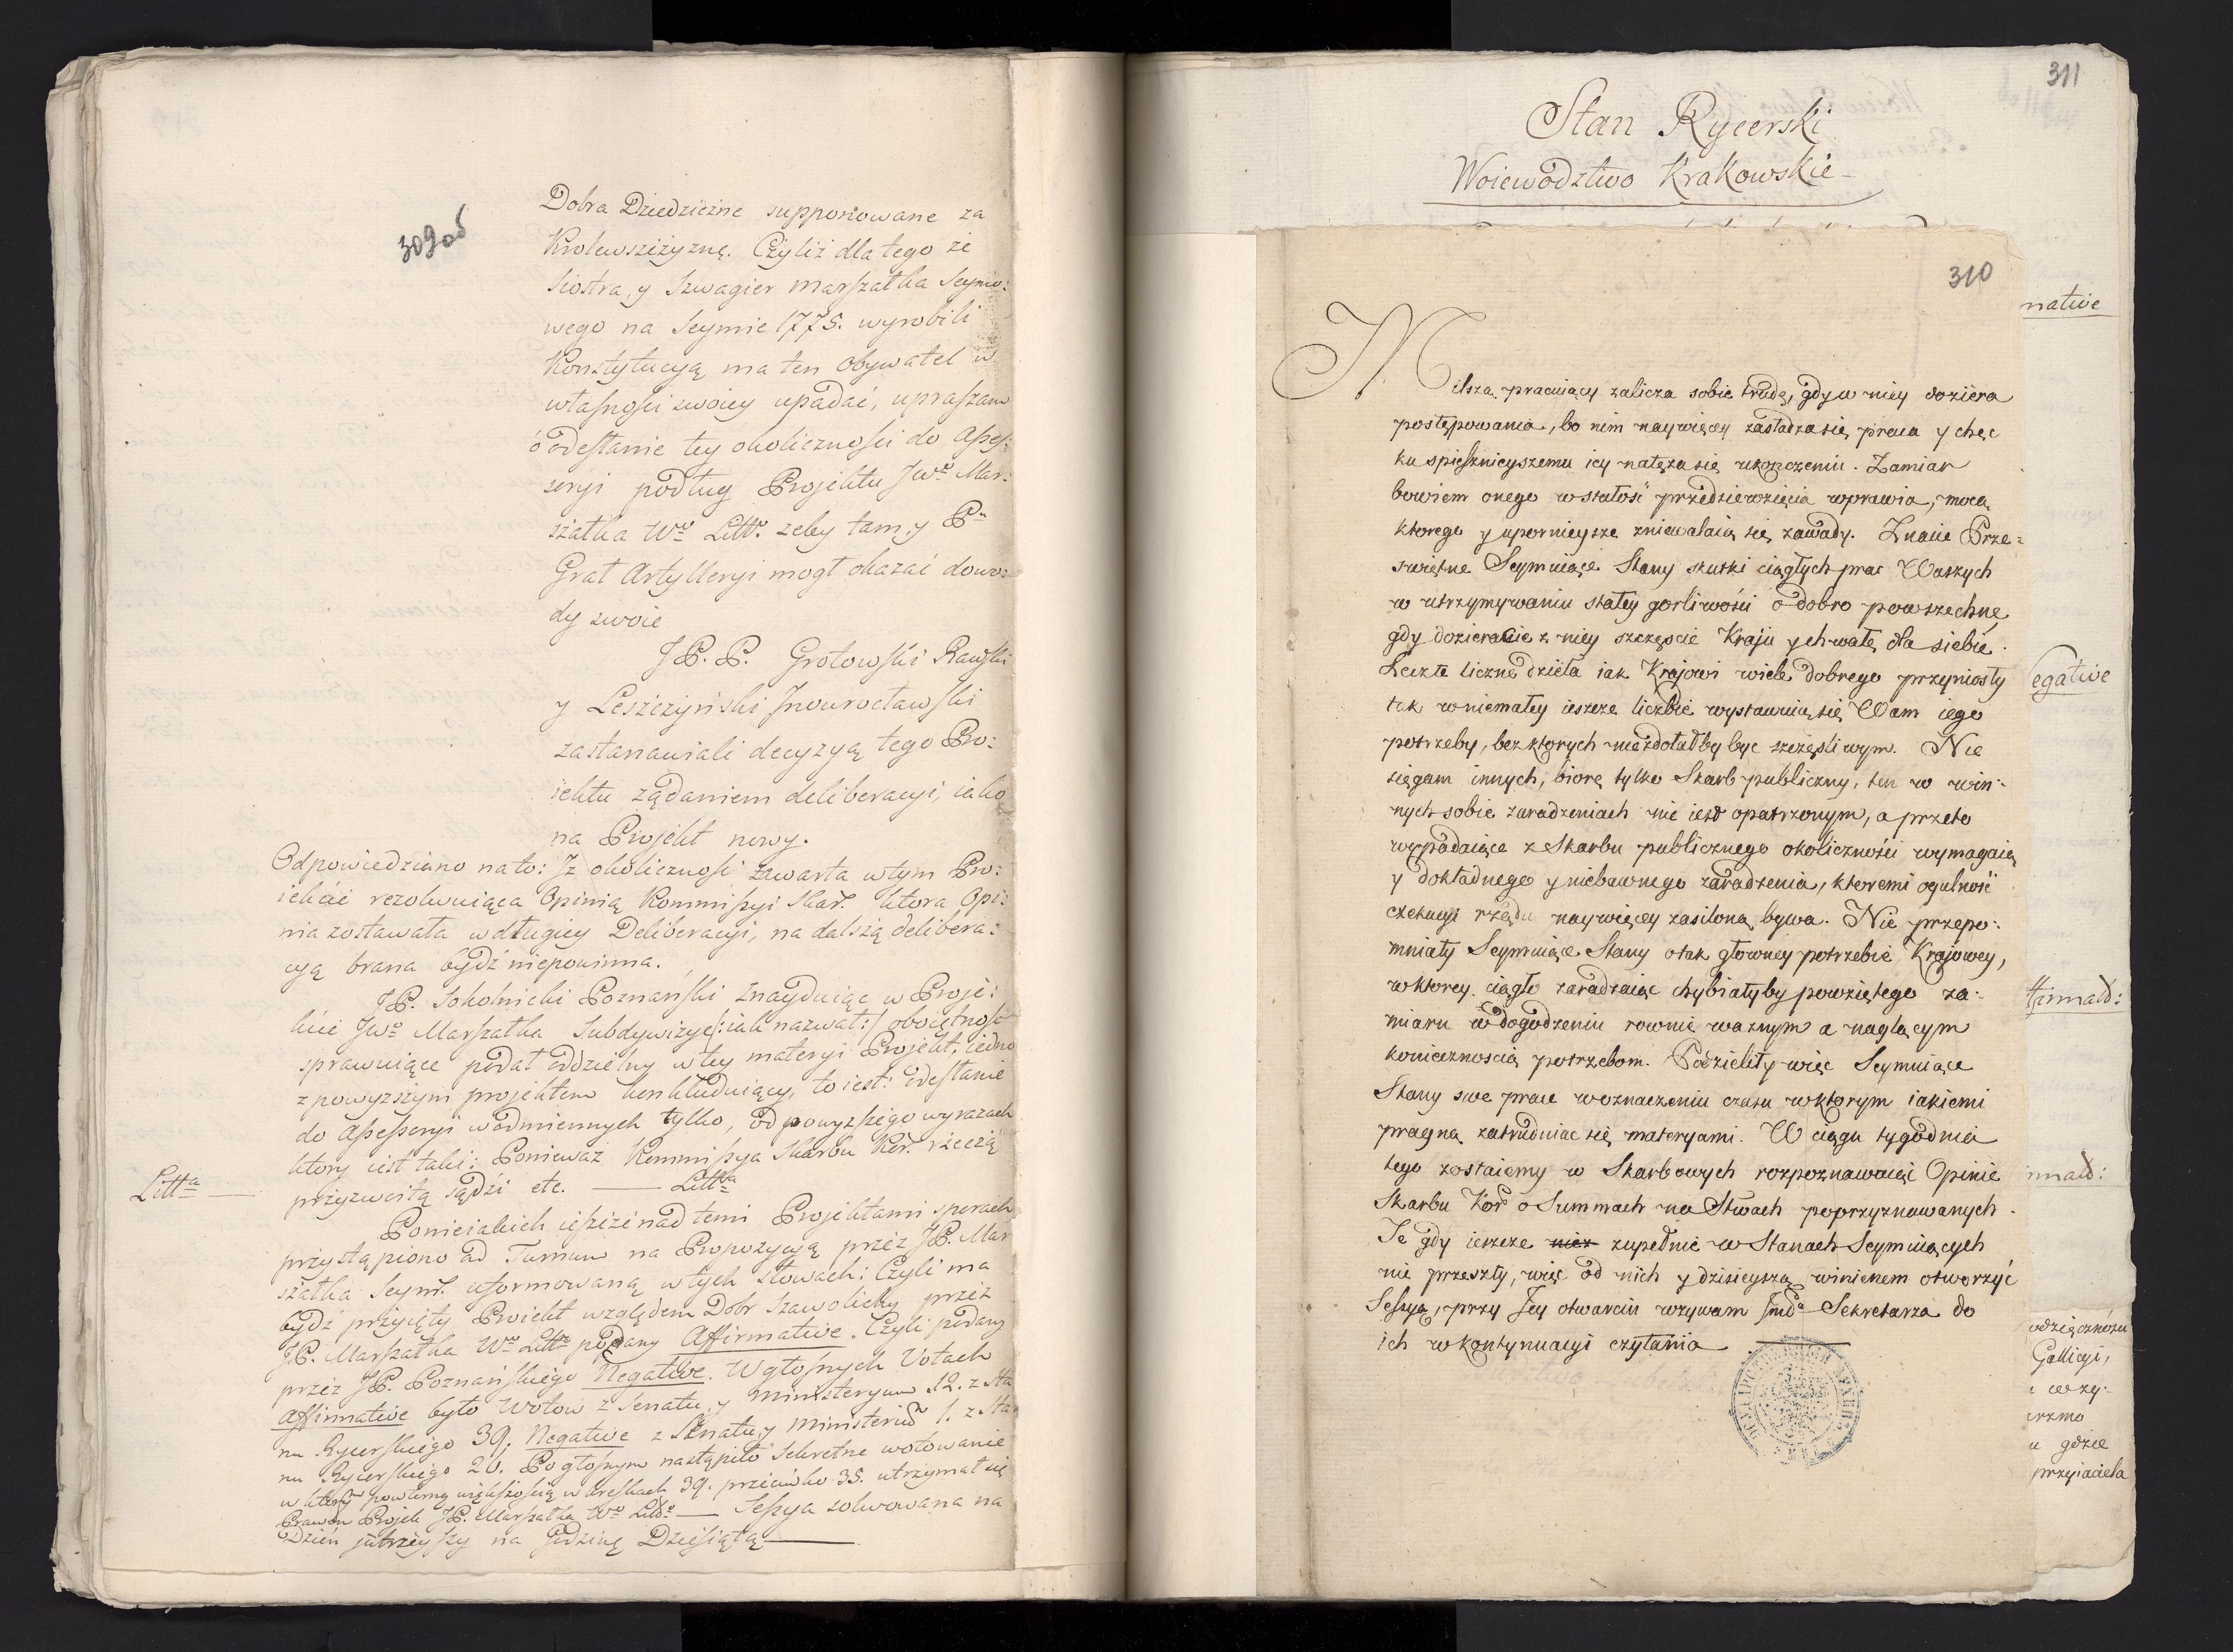 309od
Dobra Dziedziczne supponowane za
Krolewszczyznę. Czyliż dla tego że
siostra, y Szwagier marszałka Seymo:
wego na Seymie 1775. wyrobili
Konstytucyą ma ten obywatel w
własności swoiey upadać, upraszam
o odesłanie tey okoliczności do Asses:
soryi podług Projektu JWo Mar:
szałka Wo Litt. zeby tam y P
Grał Artylleryi mogł okazać dowo:
dy swoie
J P. P. Grotowski Rawski
y Leszczyński Inowrocławski
zastanawiali decyzyą tego Pro:
iektu żądaniem deliberacyi, iako
na Projekt nowy.
Odpowiedziano na to: Iz okoliczność zawarta w tym Pro:
iekcie rezolwuiąca Opinią Kommissyi Skar. ktora Opi:
nia zostawała w długiey Deliberacyi, na dalszą delibera:
cyą brana bydź niepowinna.
JP. Sokolnicki Poznański Znayduiąc w Proje:
kcie JWo Marszałka Subdywizyę /:iak nazwał:/ oboiętność
sprawuiące podał oddzielny w tey materyi Projekt, iedno
z powyzszym projektem konkluduiący, to iest: odesłanie
do Assessoryi w odmiennych tylko, od powyzszego wyrazach
ktory iest taki: Ponieważ Kommissya Skarbu Kor. rzeczą
Litta —
przyzwoitą sądzi etc. — Litta
Poniciakich ieszcze nad temi Projektami sporach
przystąpiono ad Turnum na Propozycyą przez JP. Mar
szałka Seym. uformowaną w tych słowach: Czyli ma
bydź przyięty Proiekt względem Dobr Szawolichy przez
JP. Marszałka Wo Litto podany Affirmative. Czyli podany
przez JP. Poznańskiego Negative. W głośnych Votach
Affirmative było Wotow z Senatu, y Ministeryum 12. z Sta
nu Rycerskiego 39. Negative z Senatu y Ministerium 1. z Sta
nu Rycerskiego 20. Po głośnym nastąpiło Sekretne wotowanie
w ktorym powtorną większością w kreskach 39. przeciwko 35. utrzymał się
Prawem Projekt JP. Marszałka Wo Litto — Sessya solwowana na
Dzień jutrzeyszy na Godzinę Dziesiątą —
311
Stan Rycerski
Woiewodztwo Krakowskie
310
Milszą pracuiący zalicza sobie trudę, gdy w niey doziera
postępowania, bo nim naywięcey zasładza się praca y chęć
ku spiesznieyszemu icy natęża się ukończeniu. Zamiar
bowiem onego w stałość przedsięwzięcia wprawia, mocą
ktorego y upornieysze zniewalaią się zawady. Znacie Prze=
świętne Seymuiące Stany skutki ciągłych prac Waszych
w utrzymywaniu stałey gorliwości o dobro powszechne
gdy dozieracie z niey szczęście Kraju y chwałę dla siebie.
Lecz te liczne dzieła iak Krajowi wiele dobrego przyniosły
tak w niemałey ieszcze liczbie wystawuią się Wam iego
potrzeby, bez ktorych nie zdołałby być szczęśliwym. Nie
sięgam innych, biorę tylko Skarb publiczny, ten w win:
nych sobie zaradzeniach nie iest opatrzonym, a przeto
wypadaiące z Skarbu publicznego okoliczności wymagaią
y dokładnego y niebawnego zaradzenia, ktoremi ogulność
exekucyi rządu naywięcey zasiloną bywa. Nie przepo:
mniały Seymuiące Stany o tak głowney potrzebie Krajowey,
w ktorey ciągło zaradzaiąc chybiałyby powziętego za:
miaru w dogodzeniu rownie ważnym a naglącym
koniecznością potrzebom. Podzieliły więc Seymuiące
Stany swe prace w oznaczeniu czasu w ktorym iakiemi
pragną zatrudniac się materyami. W ciągu tygodnia
tego zostaiemy w Skarbowych rozpoznawaiąc Opinie
Skarbu Kor o Summach na Stwach poprzyznawanych.
Te gdy ieszcze nież zupełnie w Stanach Seymuiących
nie przeszły, więc od nich y dzisieyszą winienem otworzyć
Sessyą, przy Jey otwarciu wzywam Jmci Sekretarza do
ich w kontynuacyi czytania —
native
egative
ffirmatd:
rmatd:
odzięcznosci
Gallicyi,
i wzy:
erzmo
u gdzie
przyiaciela